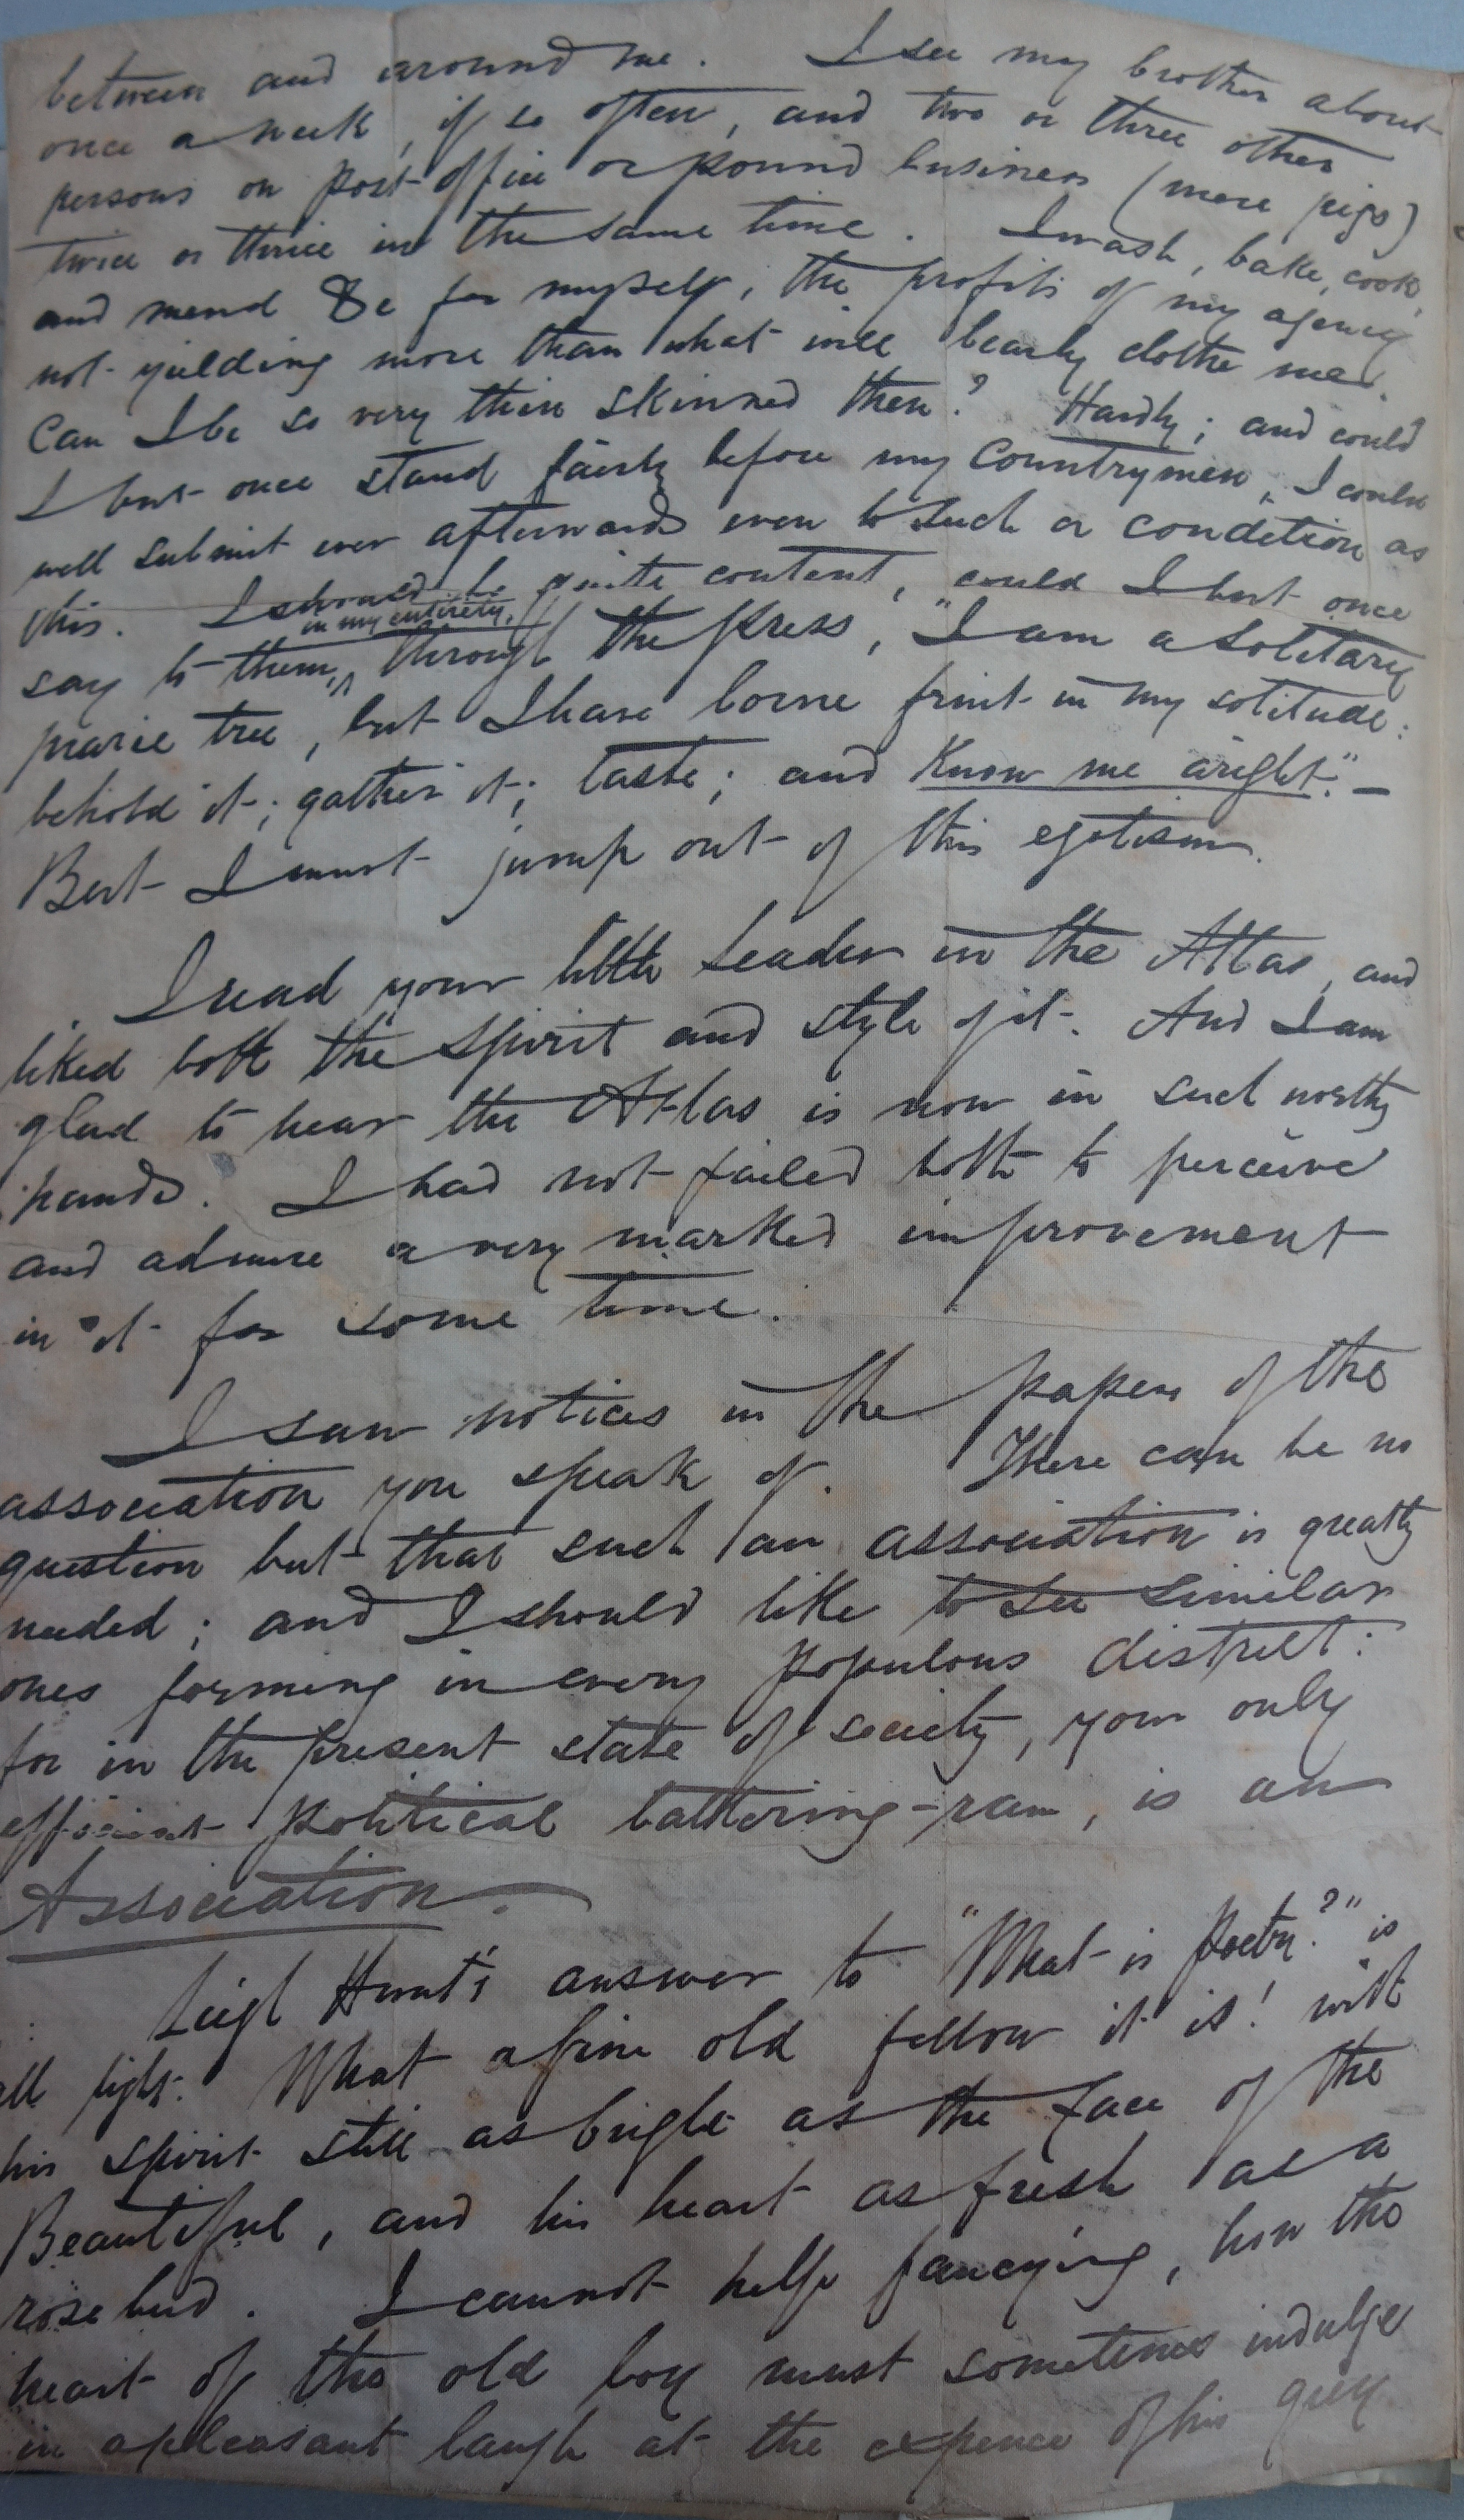 between and around me. I see my brother about
once a week, if so often, and two or three other
persons on post-office or pound business (more pigs)
twice or thrice in the same time. I wash, bake, cook,
and mend &c for myself, the profits of my agency
not yielding more than what will bearly clothe me.
Can I be so very thin skinned then? Hardly; and could
I but once stand fairly before my Countrymen, I could
well submit ever afterwards even to such a condition as
this. I should be quite content, could I but once
in my entirety,
say to them, through the Press, "I am a solitary
prarie tree, but I have borne fruit in my solitude:
behold it; gather it; taste; and Know me aright." —
But I must jump out of this egotism.
I read your little Leader in the Atlas, and
liked both the spirit and style of it. And I am
glad to hear the Atlas is now in such worthy
hands. I had not failed both to perceive
and admire a very marked improvement
in it for some time.
I saw notices in the papers of the
association you speak of. There can be no
question but that such an association is greatly
needed; and I should like to see similar
ones forming in every populous district:
for in the present state of society, your only
efficient political battering-ram, is an
Association.
Leigh Hunt's answer to "What is Poetry?" is
all light. What a fine old fellow it is! with
his spirit still as bright as the face of the
Beautiful, and his heart as fresh as a
rose bud. I cannot help fancying, how the
heart of the old boy must sometimes indulge
in a pleasant laugh at the expence of his grey